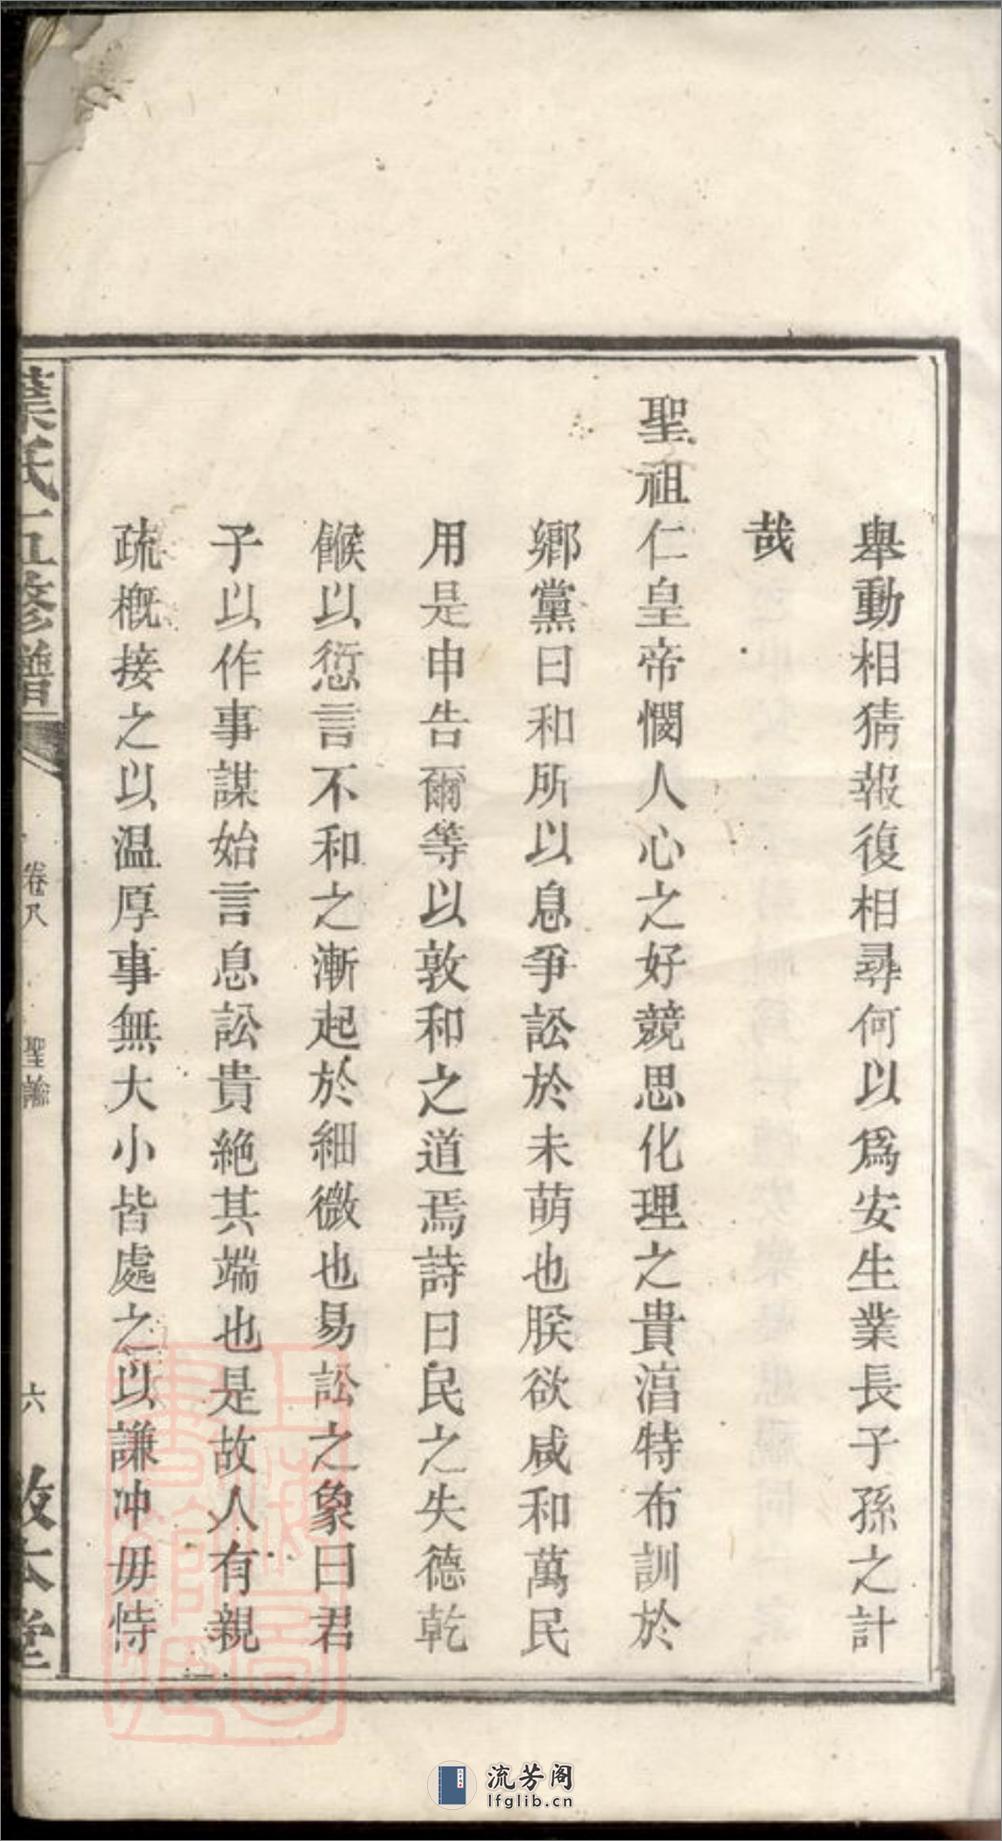 舉動相猜報復相尋何以爲安生業長子孫之計
哉
聖祖仁皇帝憫人心之好競思化理之貴湻特布訓於
鄉黨曰和所以息爭訟於未萌也朕欲咸和萬民
用是申告爾等以敦和之道焉詩曰民之失德乾
餱以愆言不和之漸起於細微也易訟之象曰君
子以作事謀始言息訟貴絕其端也是故人有親
疏概接之以温厚事無大小皆處之以謙冲毋恃
葉氏五修譜
卷八
聖諭
六
敦本堂
上海圖書館藏
流芳阁
lfglib.cn